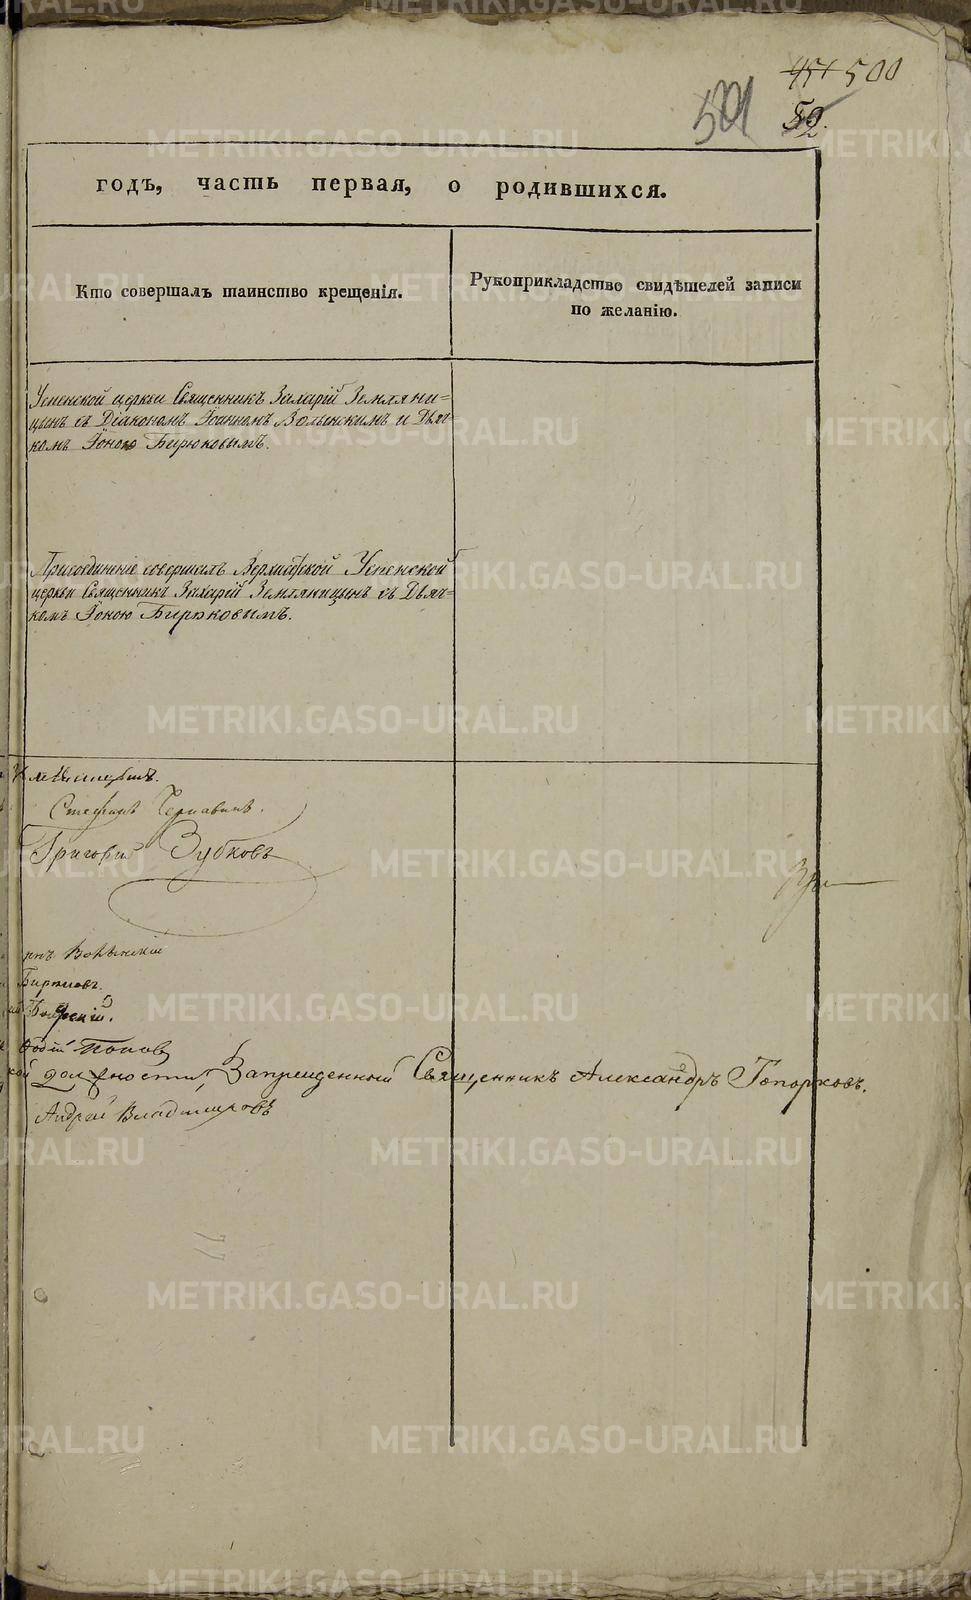 451 500
501 52.
годъ, часть первая, о родившихся.
Кто совершалъ таинство крещенія.
Рукоприкладство свидѣтелей записи
по желанію.
Успенской церкви Священникъ Захарій Земляни=
цынъ съ Діакономъ Іоанномъ Волынскимъ и Дьяч=
комъ Іоною Бирюковымъ.
Присоединеніе совершалъ Успенской
церкви Священникъ Захарій Земляницынъ съ Дьяч=
комъ Іоною Бирюковымъ.
Стефанъ Чернавинъ.
Григорій Зубковъ
Волынскій
Бирюковъ.
Поповъ
должности, Запрещенный Священникъ Александръ Топорковъ.
Андрей Владимировъ
METRIKI.GASO-URAL.RU